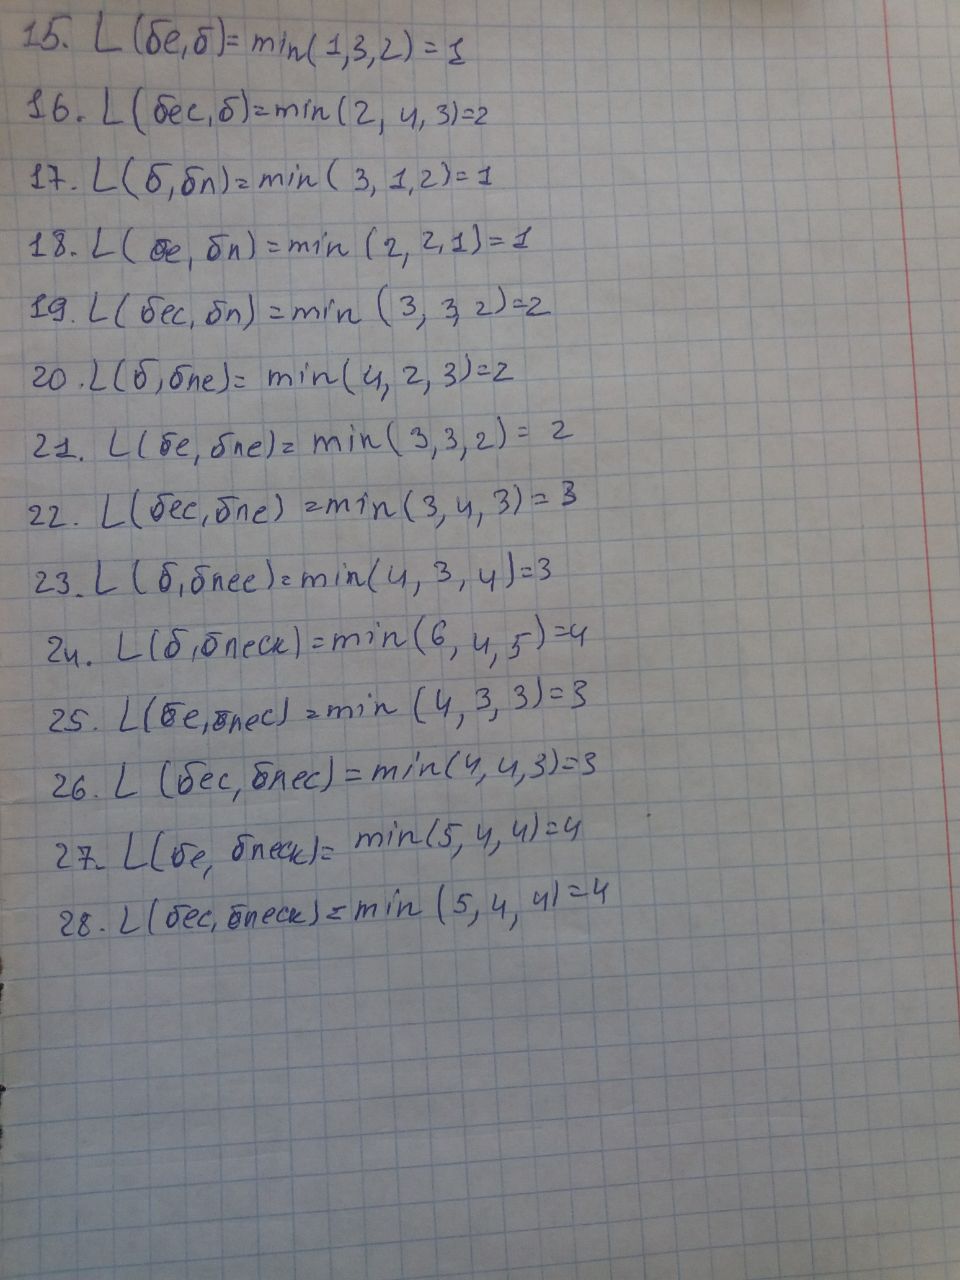 15. L(бе,б)=min(1,3,2)=1
16. L(бес,б)=min(2,4,3)=2
17. L(б,бп)=min(3,1,2)=1
18. L(бе,бп)=min(2,2,1)=1
19. L(бес,бп)=min(3,3,2)=2
20. L(б,бпе)=min(4,2,3)=2
21. L(бе,бпе)=min(3,3,2)=2
22. L(бес,бпе)=min(3,4,3)=3
23. L(б,бпес)=min(4,3,4)=3
24. L(б,бпеск)=min(6,4,5)=4
25. L(бе,бпес)=min(4,3,3)=3
26. L(бес,бпес)=min(4,4,3)=3
27. L(бе,бпеск)=min(5,4,4)=4
28. L(бес,бпеск)=min(5,4,4)=4